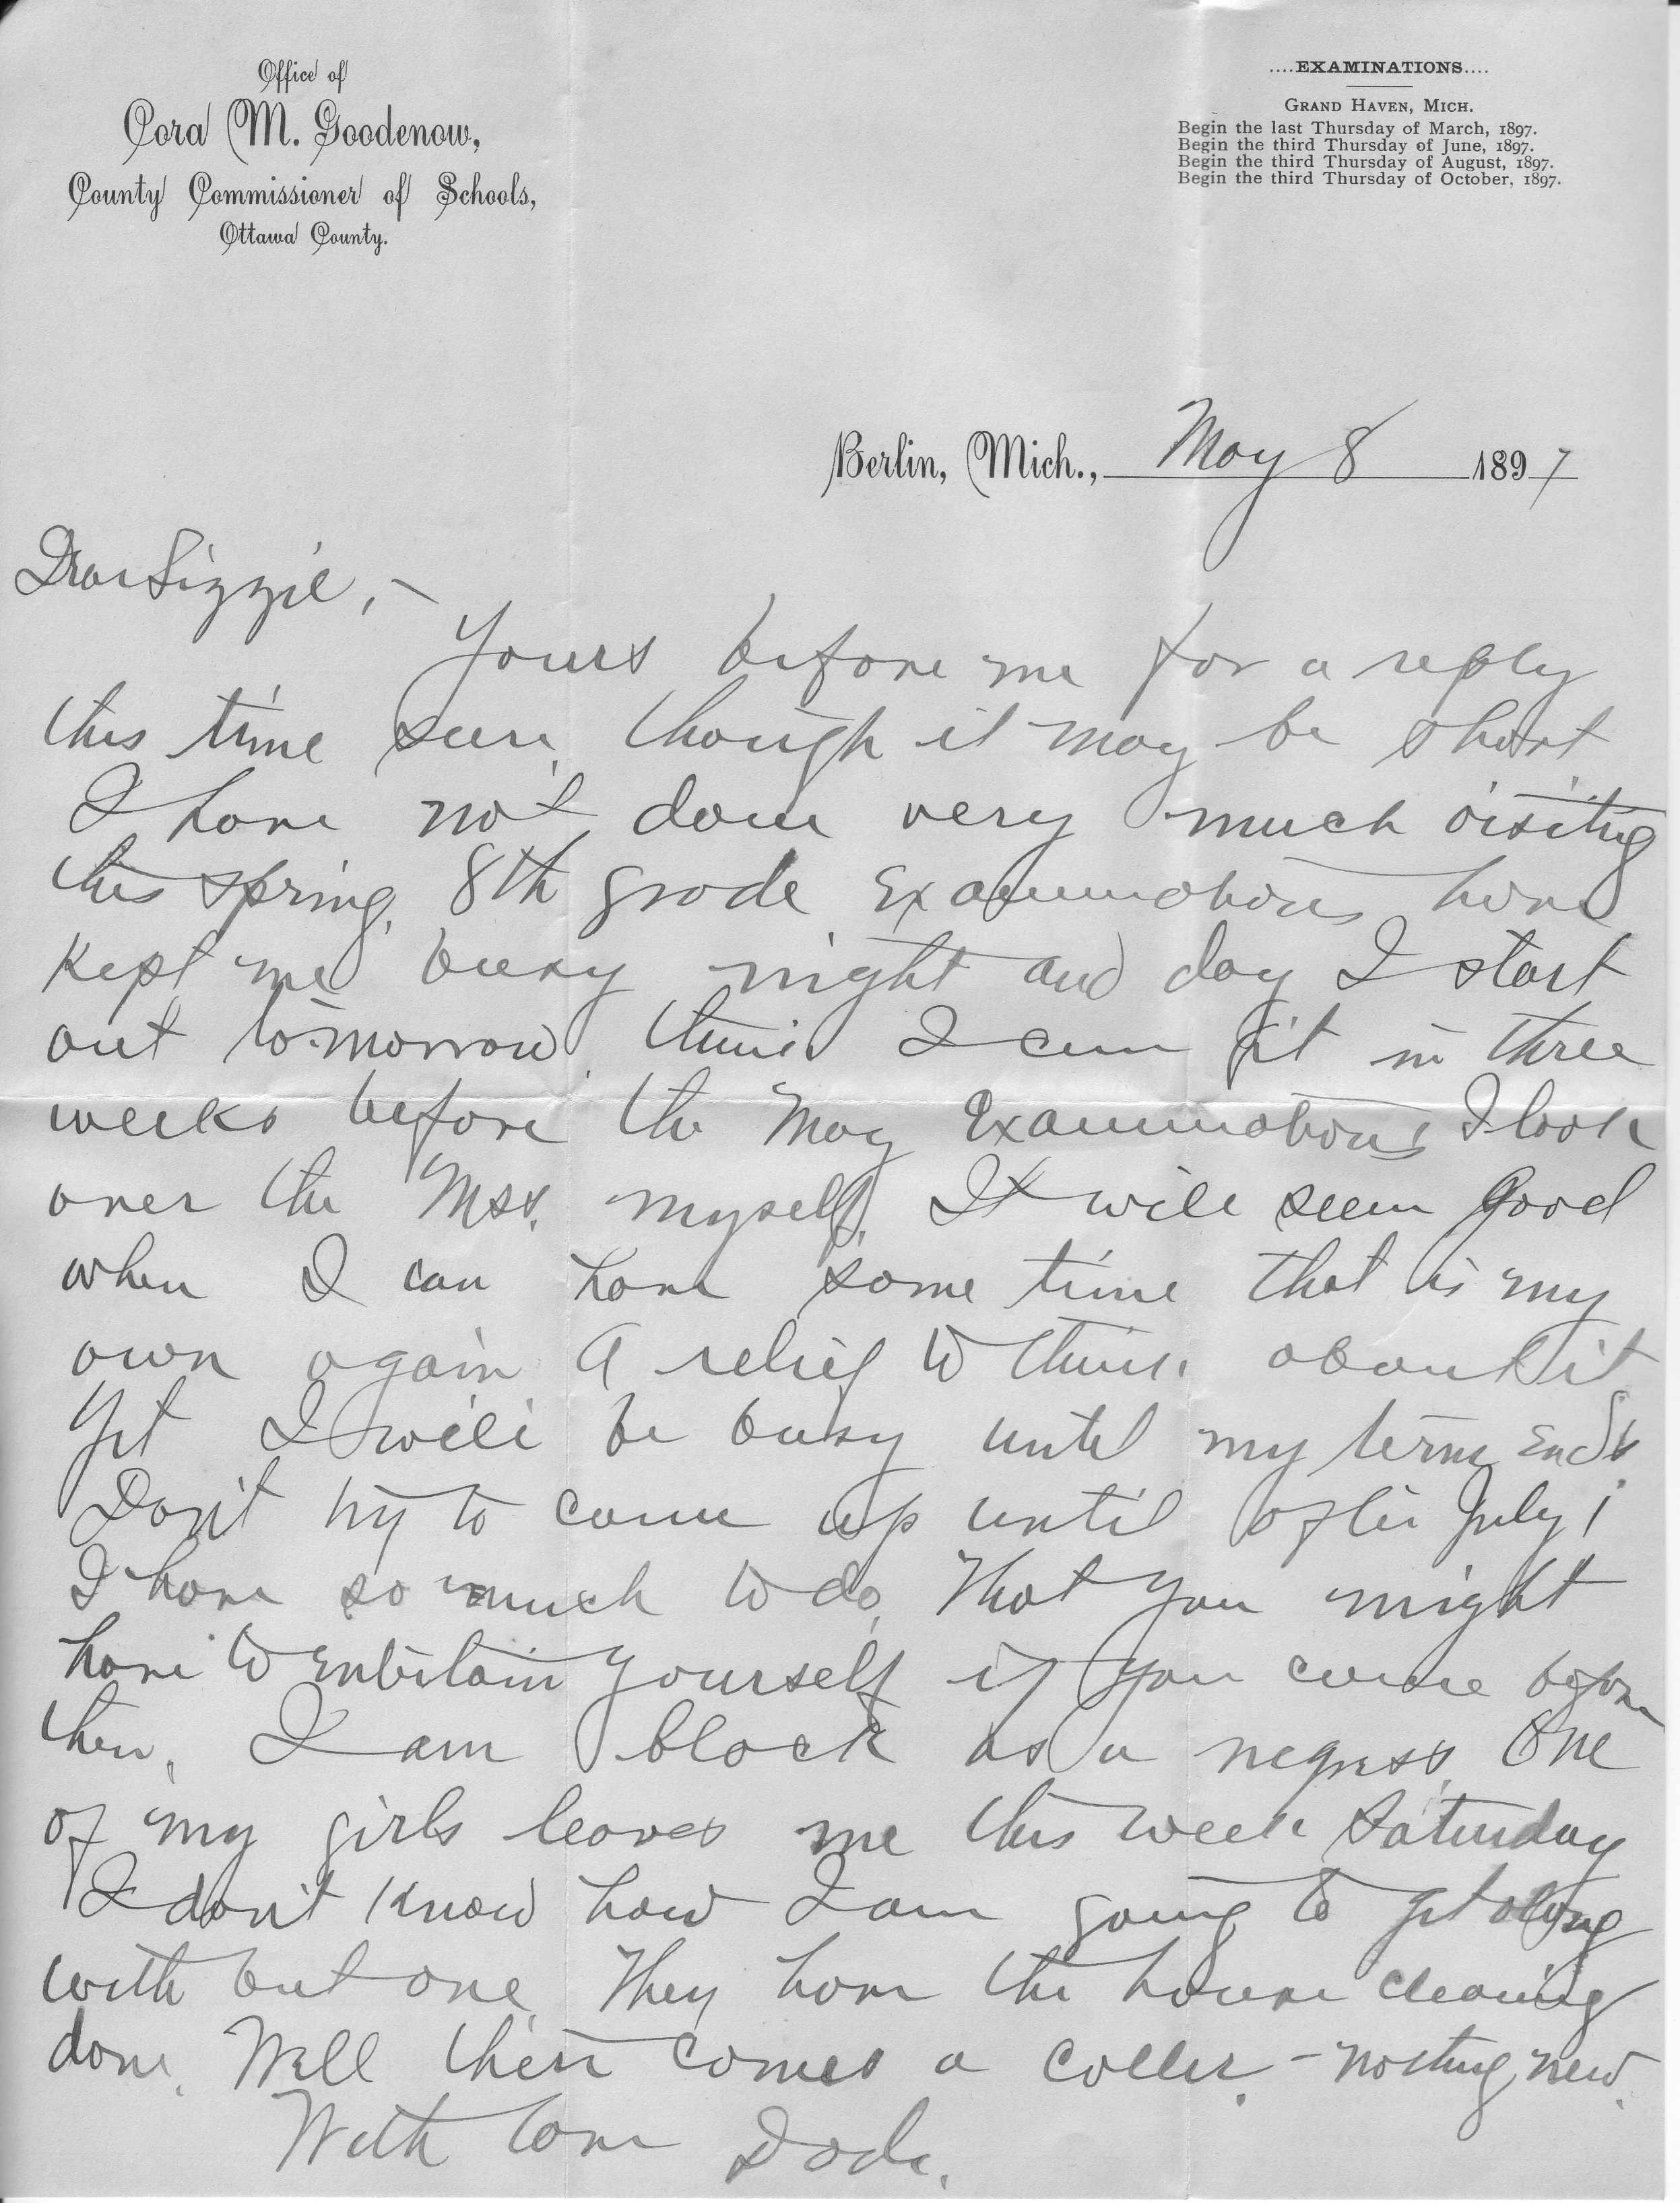 Office of
Cora M. Goodenow,
County Commissioner of Schools,
Ottawa County.
....EXAMINATIONS....
GRAND HAVEN, MICH.
Begin the last Thursday of March, 1897.
Begin the third Thursday of June, 1897.
Begin the third Thursday of August, 1897.
Begin the third Thursday of October, 1897.
Berlin, Mich., May 8 1897
Dear Lizzie, -
Yours before me for a reply
this time sure, though it may be short
I have not done very much visiting
this spring. 8th grade Examinations have
kept me busy night and day I start
out tomorrow. think I can in three
weeks before the May Examinations I look
over the Mss. myself. It will seem good
when I can have some time that is my
own again A relief to think about it
Yet I will be busy until my term ends
Don't try to come up until after July 1
I have so much to do. That you might
have to entertain yourself if you come before
then. I am black as a negress. One
of my girls leaves me this week Saturday
I don't know how I am going to get along
with but one. They have the house cleaning
done. Well there comes a caller. - nothing new.
With love Dode.